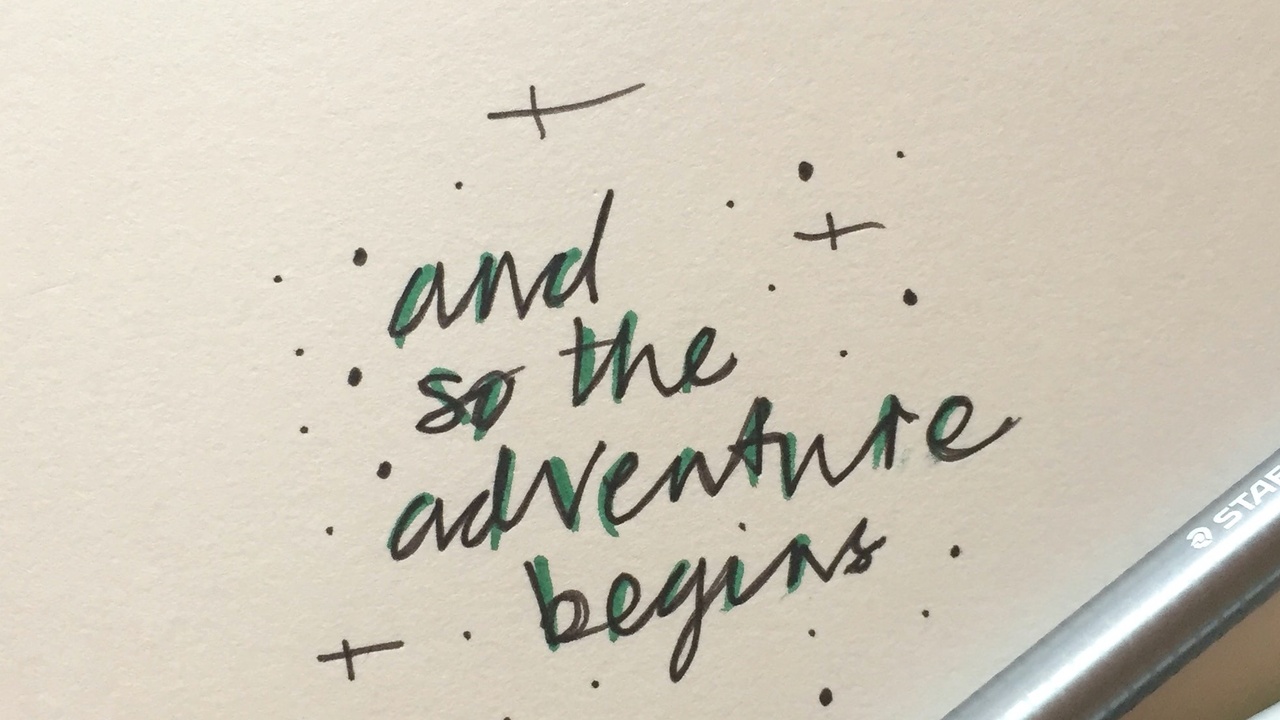 and
so the
adventure
begins
STAE